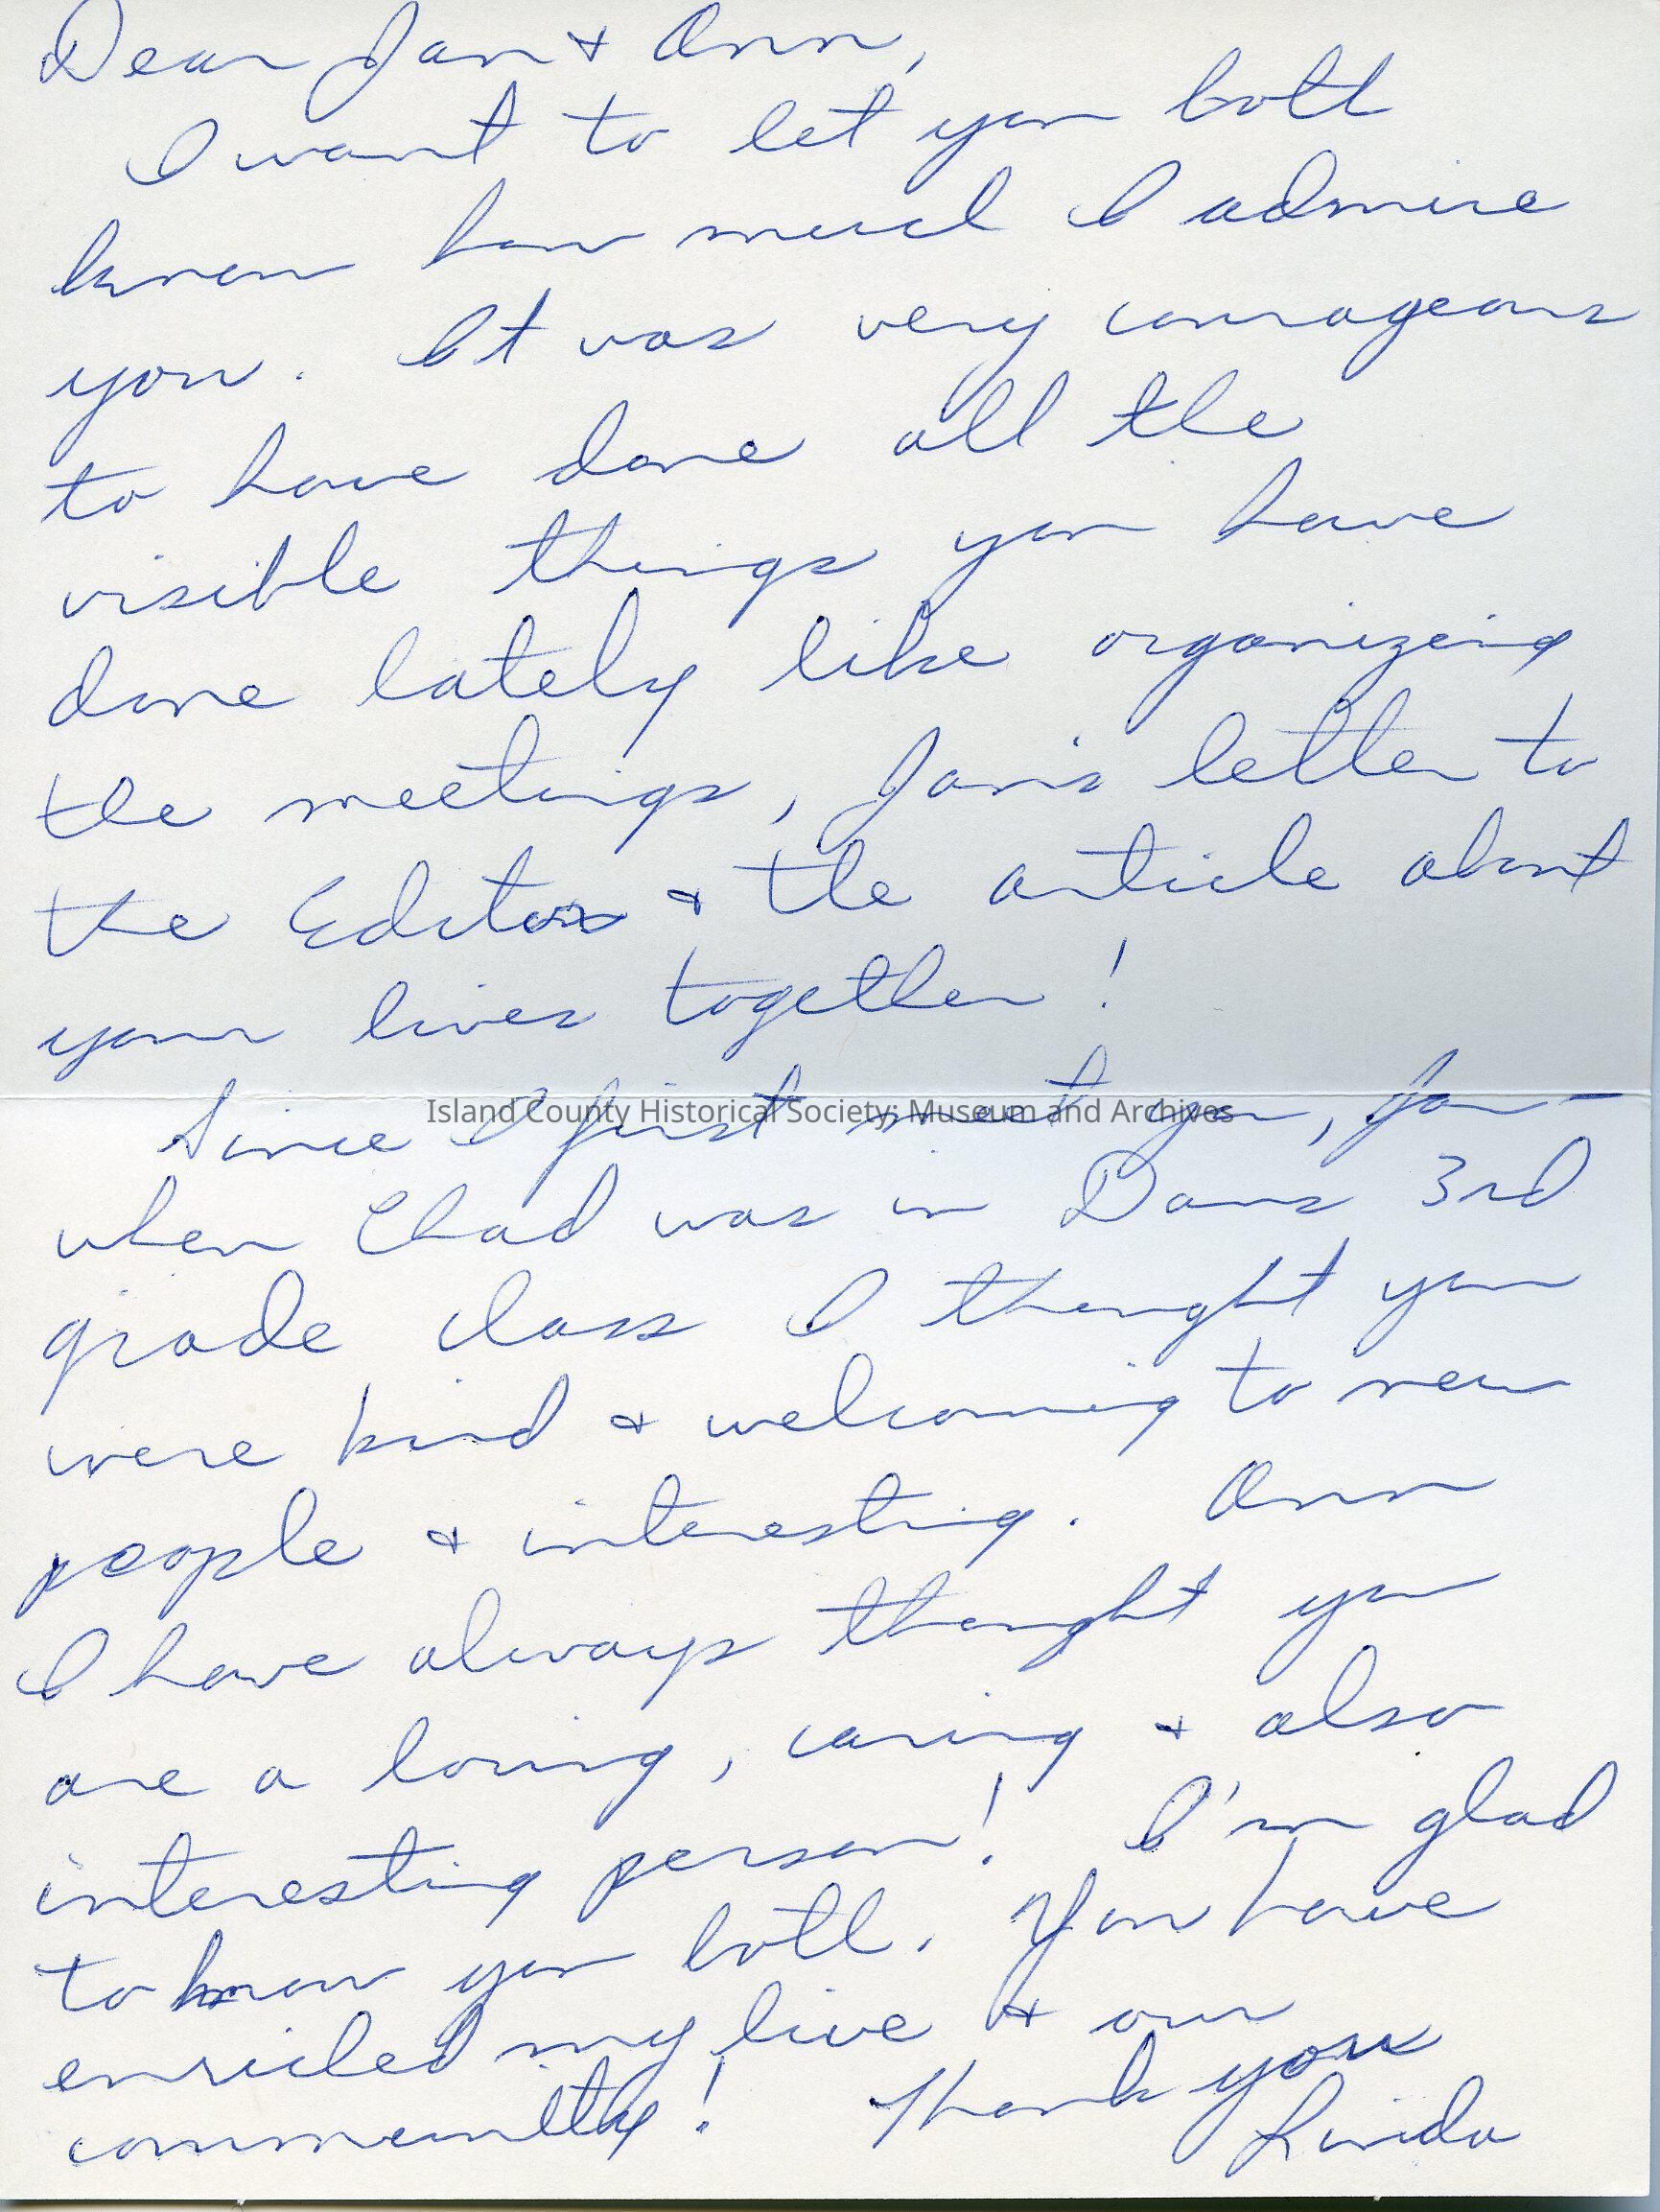 Dear Jan & Ann,
I want to let you both
know how much I admire
you. It was very courageous
to have done all the
visible things you have
done lately like organizing
the meetings, Jan's letter to
the Editor & the article about
your lives together!
Since I first met you, Jan -
Island County Historical Society: Museum and Archives
when Chad was in Dans 3rd
grade class I thought you
were kind & welcoming to new
people & interesting. Ann
I have always thought you
are a loving, caring & also
interesting person! I'm glad
to know you both. You have
enriched my live & our
community! Thank you
Linda